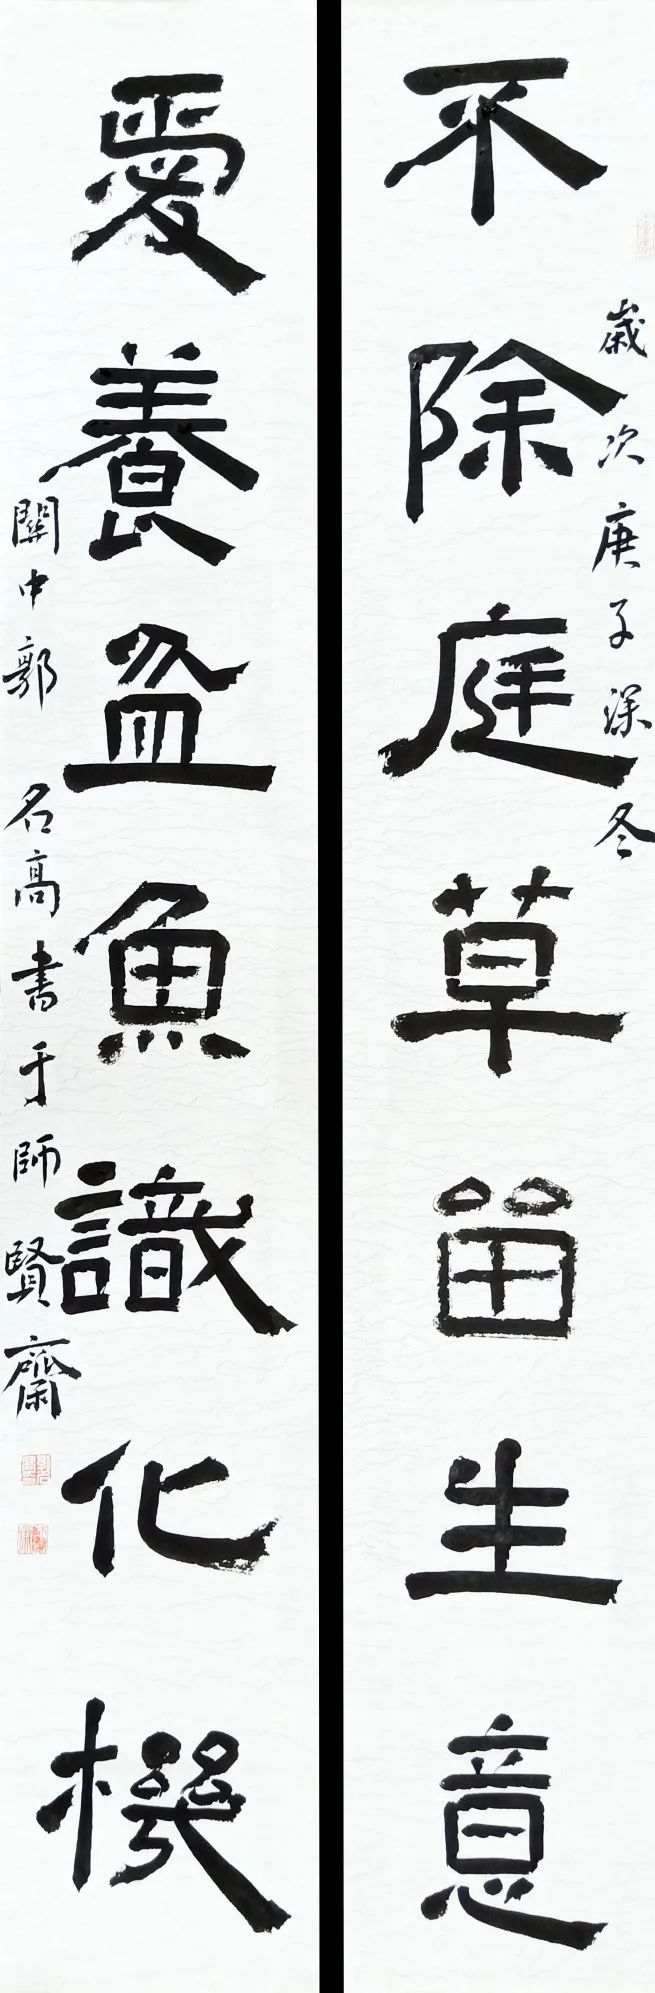 不除庭草留生意
歲次庚子深冬
愛養盆魚識化機
關中郭名高書于師賢齋